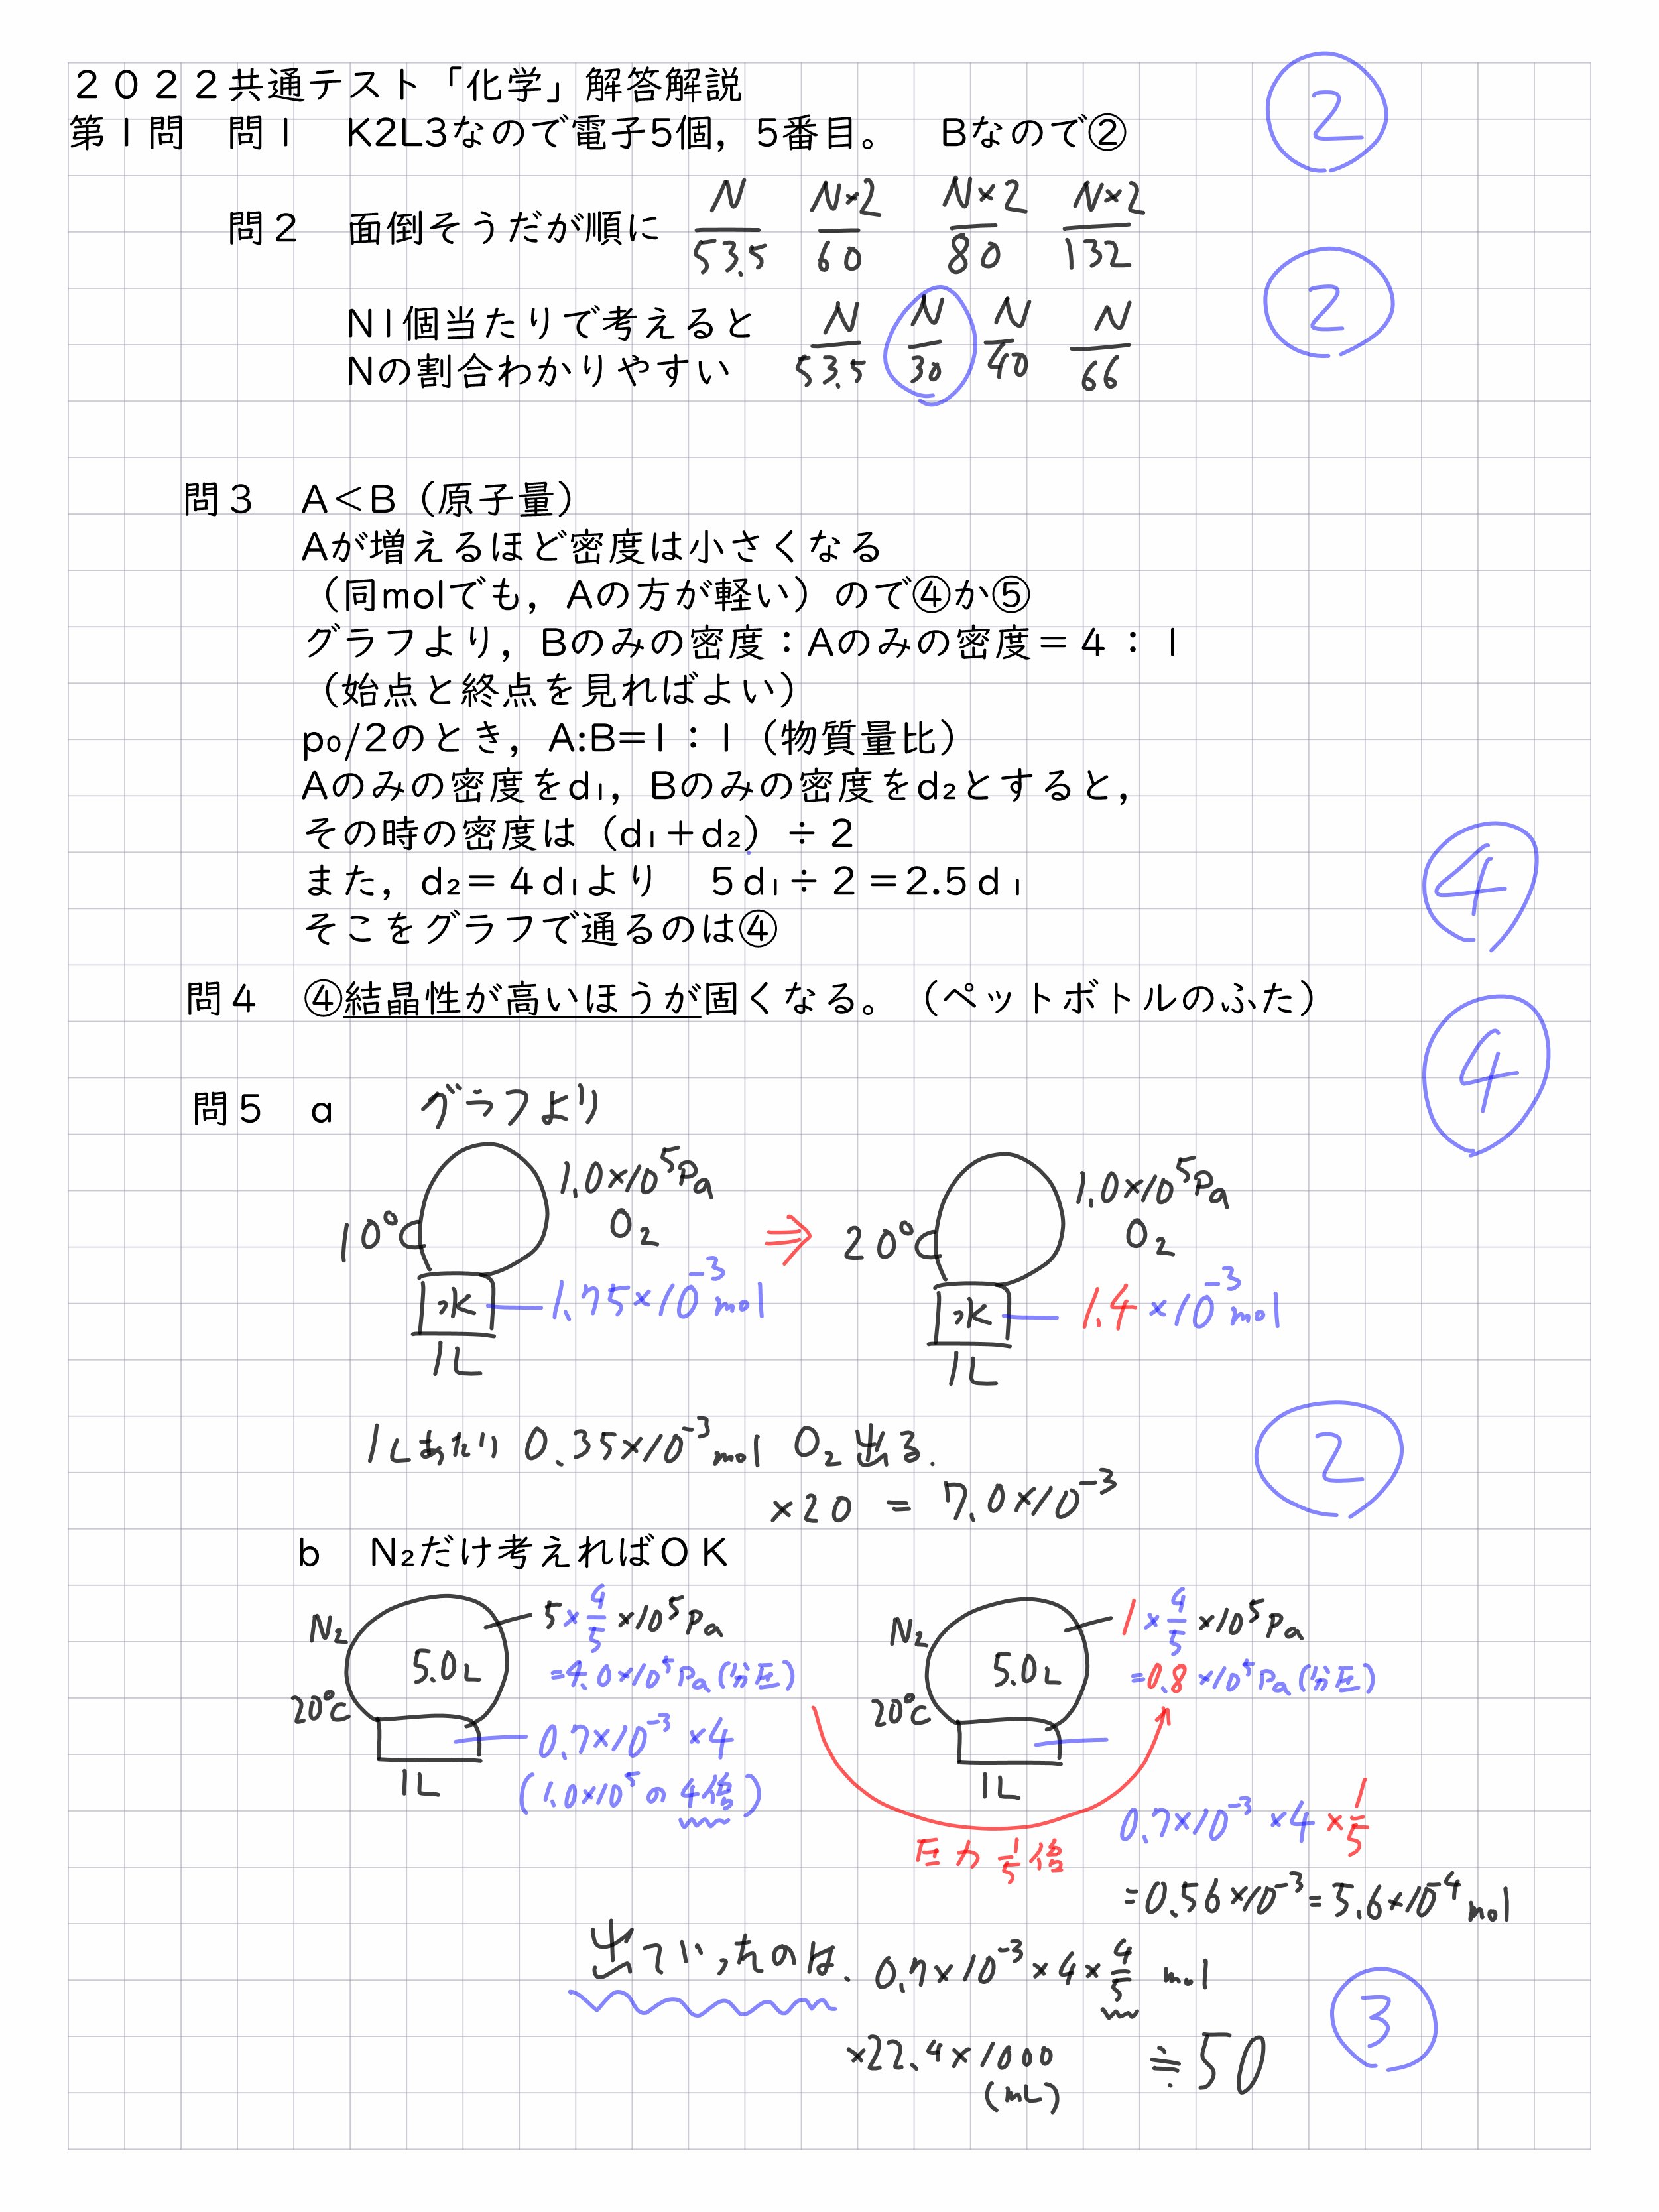 ２０２２共通テスト「化学」解答解説
②
第１問　問１　K2L3なので電子5個，5番目。　Bなので②
問２　面倒そうだが順に　N/53.5　N×2/60　N×2/80　N×2/132
②
N1個当たりで考えると
Nの割合わかりやすい　N/53.5　N/30　N/40　N/66
問３　A＜B（原子量）
Aが増えるほど密度は小さくなる
（同molでも，Aの方が軽い）ので④か⑤
グラフより，Bのみの密度：Aのみの密度＝４：１
（始点と終点を見ればよい）
p₀/2のとき，A:B=1：1（物質量比）
Aのみの密度をd₁，Bのみの密度をd₂とすると，
その時の密度は（d₁＋d₂）÷２
また，d₂＝４d₁より　５d₁÷２＝2.5d₁
そこをグラフで通るのは④
④
問４　④結晶性が高いほうが固くなる。（ペットボトルのふた）
④
問５　a　グラフより
10℃　1.0×10⁵Pa　O₂　⇒　20℃　1.0×10⁵Pa　O₂
水　1.75×10⁻³mol　水　1.4×10⁻³mol
1L　1L
1Lあたり 0.35×10⁻³mol O₂出る.
×20 = 7.0×10⁻³
②
b　N₂だけ考えればＯＫ
N₂　5.0L　5×4/5×10⁵Pa　N₂　5.0L　1×4/5×10⁵Pa
=4.0×10⁵Pa(分圧)　=0.8×10⁵Pa(分圧)
20℃　0.7×10⁻³×4　20℃
1L　(1.0×10⁵の4倍)　1L
0.7×10⁻³×4×1/5
圧力1/5倍
=0.56×10⁻³=5.6×10⁻⁴mol
出ていったのは. 0.7×10⁻³×4×4/5 mol
③
×22.4×1000　≒50
(mL)